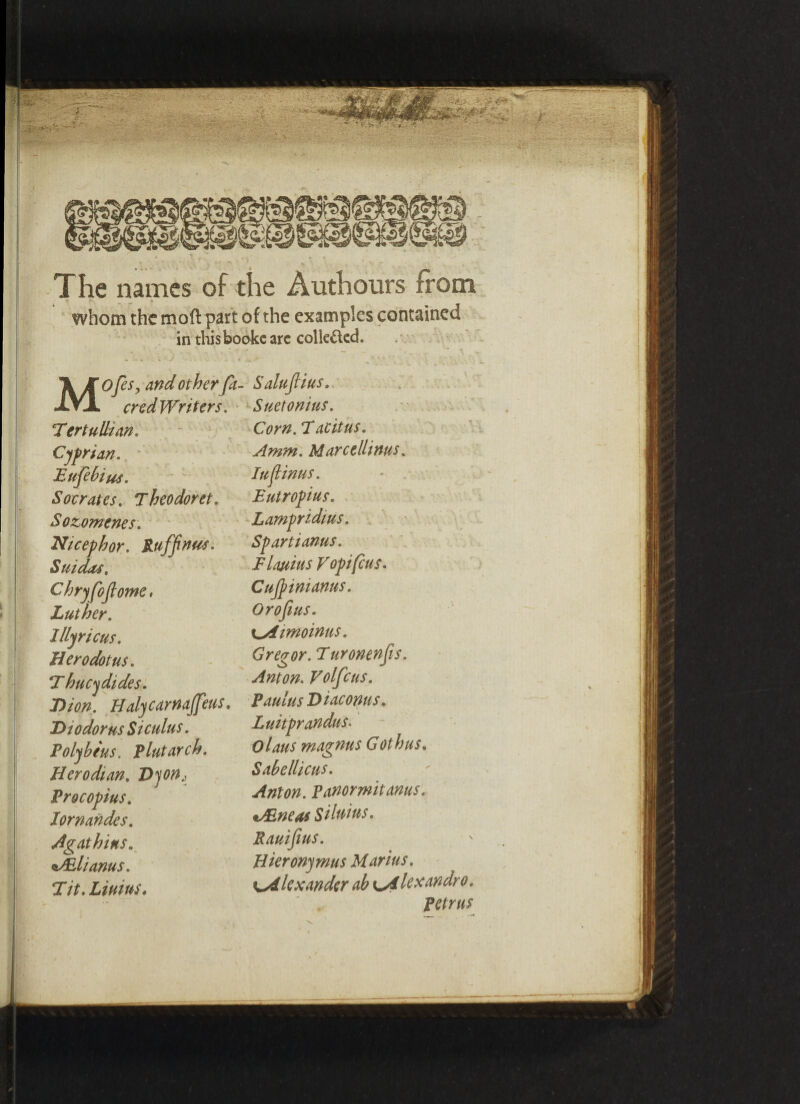 The names of the Authours from
whom the moſt part of the examples contained
in this booke are collected.
Moſes, and other ſa-
cred Writers.
Tertullian.
Cyprian.
Euſebius.
Socrates. Theodoret.
Sozomenes.
Nicephor. Ruffinus.
Suidas.
Chryſoſtome.
Luther.
Illyricus.
Herodotus.
Thucydides.
Dion. Halycarnaſſeus.
Diodorus Siculus.
Polybius. Plutarch.
Herodian. Dyon.
Procopius.
Iornandes.
Agathius.
Ælianus.
Tit. Liuius.
Saluſtius.
Suetonius.
Corn. Tacitus.
Amm. Marcellinus.
Iuſtinus.
Eutropius.
Lampridius.
Spartianus.
Flauius Vopiſcus.
Cuſpinianus.
Oroſius.
Aimoinus.
Gregor. Turonenſis.
Anton. Volſcus.
Paulus Diaconus.
Luitprandus.
Olaus magnus Gothus.
Sabellicus.
Anton. Panormitanus.
Æneas Siluius.
Rauiſius.
Hieronymus Marius.
Alexander ab Alexandro.
Petrus